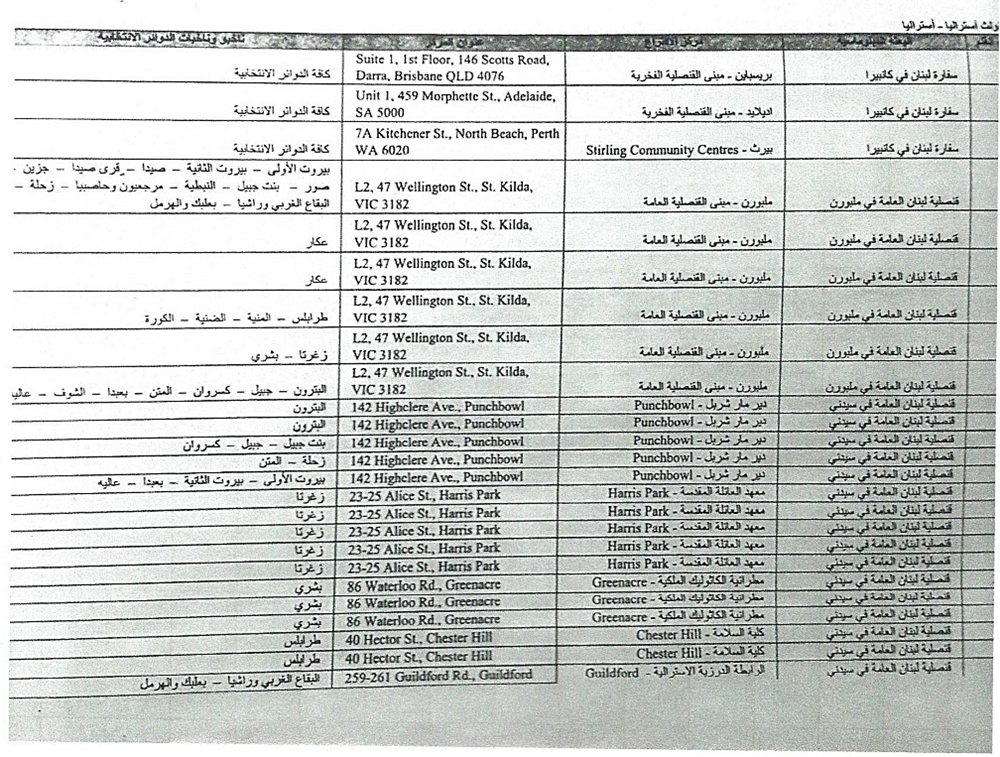 أستراليا - أستراليا
البعثة الدبلوماسية مركز الاقتراع عنوان المركز ناخبو وناخبات الدوائر الانتخابية
سفارة لبنان في كانبيرا بريسباين - مبنى القنصلية الفخرية Suite 1, 1st Floor, 146 Scotts Road, Darra, Brisbane QLD 4076 كافة الدوائر الانتخابية
سفارة لبنان في كانبيرا اديلايد - مبنى القنصلية الفخرية Unit 1, 459 Morphette St., Adelaide, SA 5000 كافة الدوائر الانتخابية
سفارة لبنان في كانبيرا بيرث - Stirling Community Centres 7A Kitchener St., North Beach, Perth WA 6020 كافة الدوائر الانتخابية
قنصلية لبنان العامة في ملبورن ملبورن - مبنى القنصلية العامة L2, 47 Wellington St., St. Kilda, VIC 3182 بيروت الأولى – بيروت الثانية – صيدا – قرى صيدا – جزين
صور – بنت جبيل – النبطية – مرجعيون وحاصبيا – زحلة –
البقاع الغربي وراشيا – بعلبك والهرمل
قنصلية لبنان العامة في ملبورن ملبورن - مبنى القنصلية العامة L2, 47 Wellington St., St. Kilda, VIC 3182 عكار
قنصلية لبنان العامة في ملبورن ملبورن - مبنى القنصلية العامة L2, 47 Wellington St., St. Kilda, VIC 3182 عكار
قنصلية لبنان العامة في ملبورن ملبورن - مبنى القنصلية العامة L2, 47 Wellington St., St. Kilda, VIC 3182 طرابلس – المنية – الضنية – الكورة
قنصلية لبنان العامة في ملبورن ملبورن - مبنى القنصلية العامة L2, 47 Wellington St., St. Kilda, VIC 3182 زغرتا – بشري
قنصلية لبنان العامة في ملبورن ملبورن - مبنى القنصلية العامة L2, 47 Wellington St., St. Kilda, VIC 3182 البترون – جبيل – كسروان – المتن – بعبدا – الشوف – عاليه
قنصلية لبنان العامة في سيدني دير مار شربل - Punchbowl 142 Highclere Ave., Punchbowl البترون
قنصلية لبنان العامة في سيدني دير مار شربل - Punchbowl 142 Highclere Ave., Punchbowl البترون
قنصلية لبنان العامة في سيدني دير مار شربل - Punchbowl 142 Highclere Ave., Punchbowl بنت جبيل – جبيل – كسروان
قنصلية لبنان العامة في سيدني دير مار شربل - Punchbowl 142 Highclere Ave., Punchbowl زحلة – المتن
قنصلية لبنان العامة في سيدني دير مار شربل - Punchbowl 142 Highclere Ave., Punchbowl بيروت الأولى – بيروت الثانية – بعبدا – عاليه
قنصلية لبنان العامة في سيدني معهد العائلة المقدسة - Harris Park 23-25 Alice St., Harris Park زغرتا
قنصلية لبنان العامة في سيدني معهد العائلة المقدسة - Harris Park 23-25 Alice St., Harris Park زغرتا
قنصلية لبنان العامة في سيدني معهد العائلة المقدسة - Harris Park 23-25 Alice St., Harris Park زغرتا
قنصلية لبنان العامة في سيدني معهد العائلة المقدسة - Harris Park 23-25 Alice St., Harris Park زغرتا
قنصلية لبنان العامة في سيدني معهد العائلة المقدسة - Harris Park 23-25 Alice St., Harris Park زغرتا
قنصلية لبنان العامة في سيدني مطرانية الكاثوليك الملكية - Greenacre 86 Waterloo Rd., Greenacre بشري
قنصلية لبنان العامة في سيدني مطرانية الكاثوليك الملكية - Greenacre 86 Waterloo Rd., Greenacre بشري
قنصلية لبنان العامة في سيدني مطرانية الكاثوليك الملكية - Greenacre 86 Waterloo Rd., Greenacre بشري
قنصلية لبنان العامة في سيدني كلية السلامة - Chester Hill 40 Hector St., Chester Hill طرابلس
قنصلية لبنان العامة في سيدني كلية السلامة - Chester Hill 40 Hector St., Chester Hill طرابلس
قنصلية لبنان العامة في سيدني الرابطة الدرزية الاسترالية - Guildford 259-261 Guildford Rd., Guildford البقاع الغربي وراشيا – بعلبك والهرمل